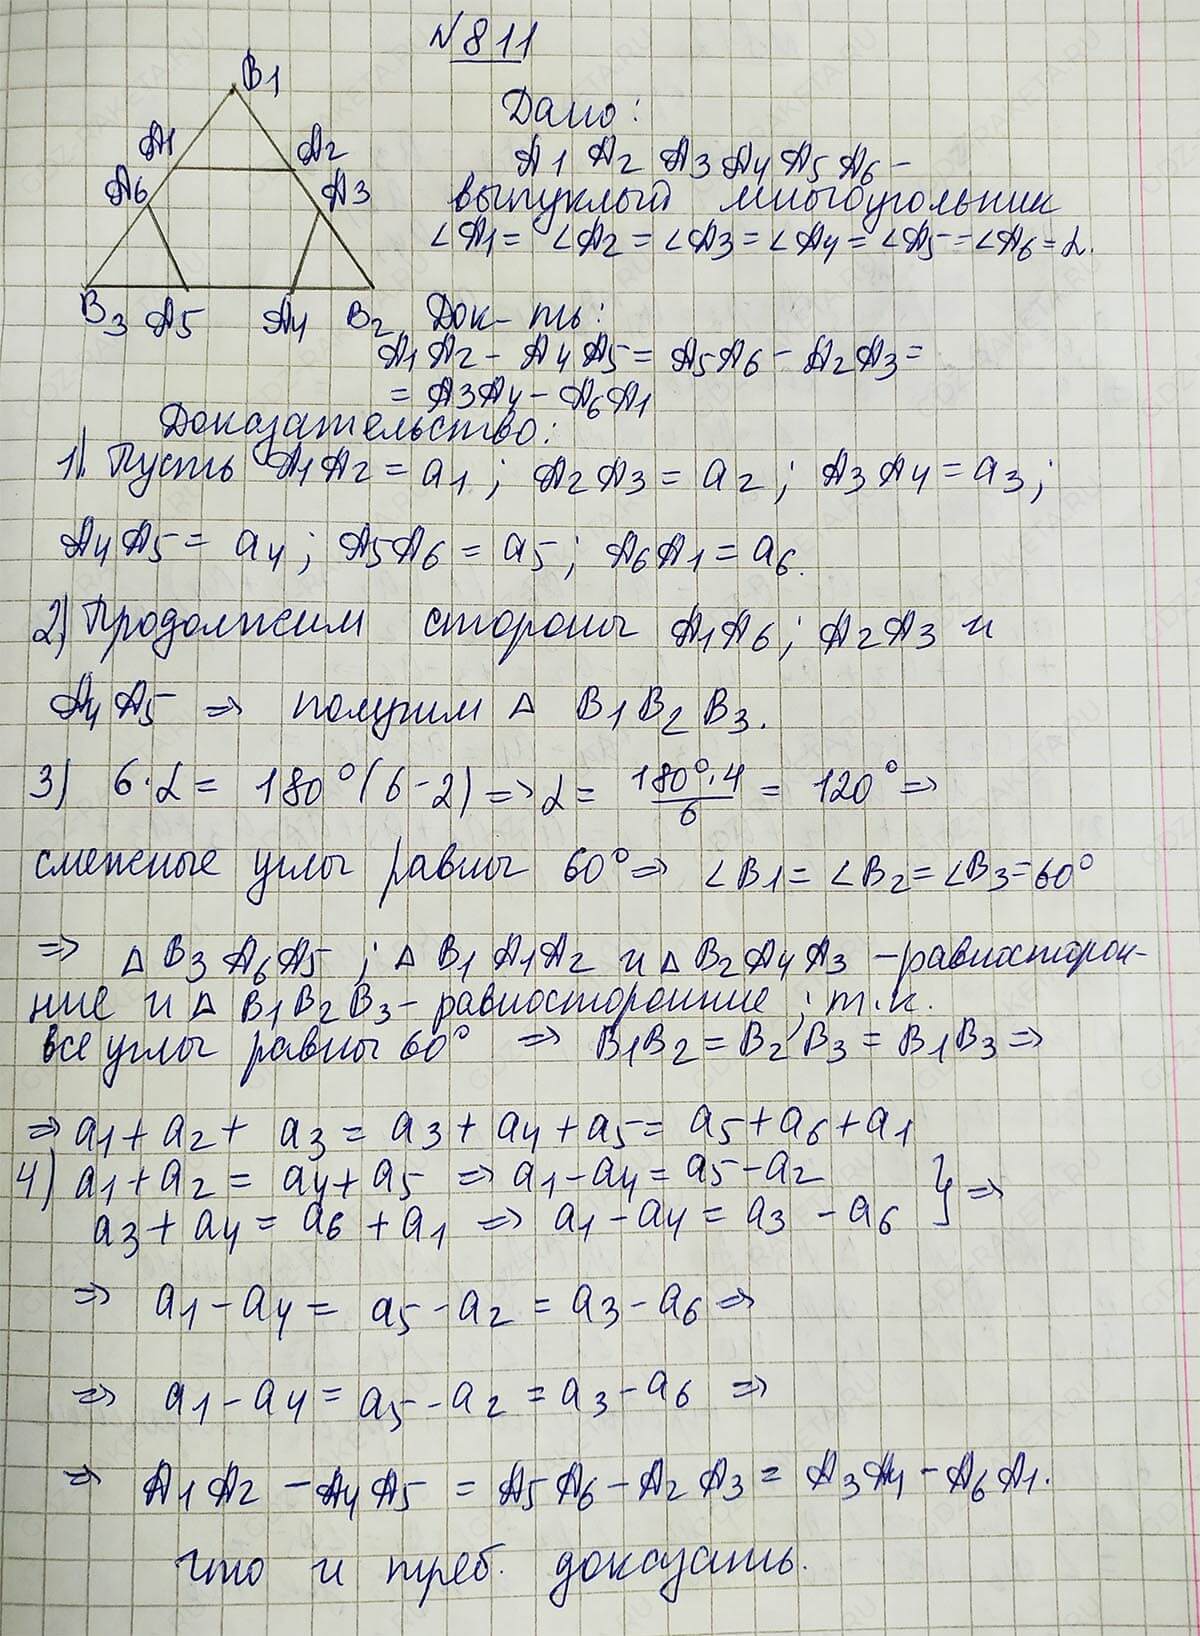 N 811
B1
A1 A2
A6 A3
B3 A5 A4 B2
Дано:
A1 A2 A3 A4 A5 A6 –
выпуклый многоугольник
∠A1 = ∠A2 = ∠A3 = ∠A4 = ∠A5 = ∠A6 = α.
Док-ть:
A1A2 – A4A5 = A5A6 – A2A3 =
= A3A4 – A6A1
Доказательство:
1) Пусть A1A2 = a1; A2A3 = a2; A3A4 = a3;
A4A5 = a4; A5A6 = a5; A6A1 = a6.
2) Продолжим стороны A1A6; A2A3 и
A4A5 ⇒ получим Δ B1B2B3.
3) 6·α = 180°(6-2) ⇒ α = 180°·4/6 = 120° ⇒
смежные углы равны 60° ⇒ ∠B1 = ∠B2 = ∠B3 = 60°
⇒ Δ B3A6A5; Δ B1A1A2 и Δ B2A4A3 – равносторон-
ние и Δ B1B2B3 – равносторонние; т.к.
все углы равны 60° ⇒ B1B2 = B2B3 = B1B3 ⇒
⇒ a1 + a2 + a3 = a3 + a4 + a5 = a5 + a6 + a1
4) a1 + a2 = a4 + a5 ⇒ a1 – a4 = a5 – a2 } ⇒
a3 + a4 = a6 + a1 ⇒ a1 – a4 = a3 – a6
⇒ a1 – a4 = a5 – a2 = a3 – a6 ⇒
⇒ a1 – a4 = a5 – a2 = a3 – a6 ⇒
⇒ A1A2 – A4A5 = A5A6 – A2A3 = A3A4 – A6A1.
Что и треб. доказать.